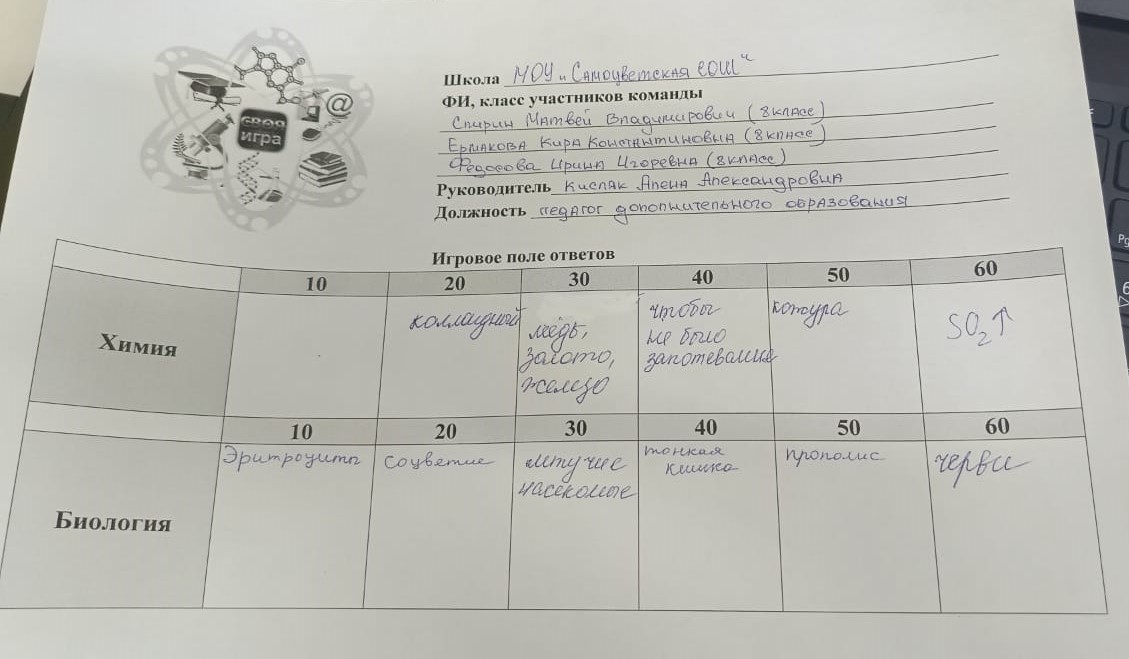 СВОЯ
игра
@
Школа МОУ „Самоцветская СОШ“
ФИ, класс участников команды
Спирин Матвей Владимирович (8класс)
Ермакова Кира Константиновна (8класс)
Федосова Ирина Игоревна (8класс)
Руководитель Кисляк Алена Александровна
Должность педагог дополнительного образования
Игровое поле ответов
10 20 30 40 50 60
Химия
коллаидный
медь,
золото,
железо
чтобы
не было
запотевания
котура
SO₂↑
10 20 30 40 50 60
Биология
Эритроциты
соцветие
летучие
насекомые
тонкая
кишка
прополис
черви
Pg
6